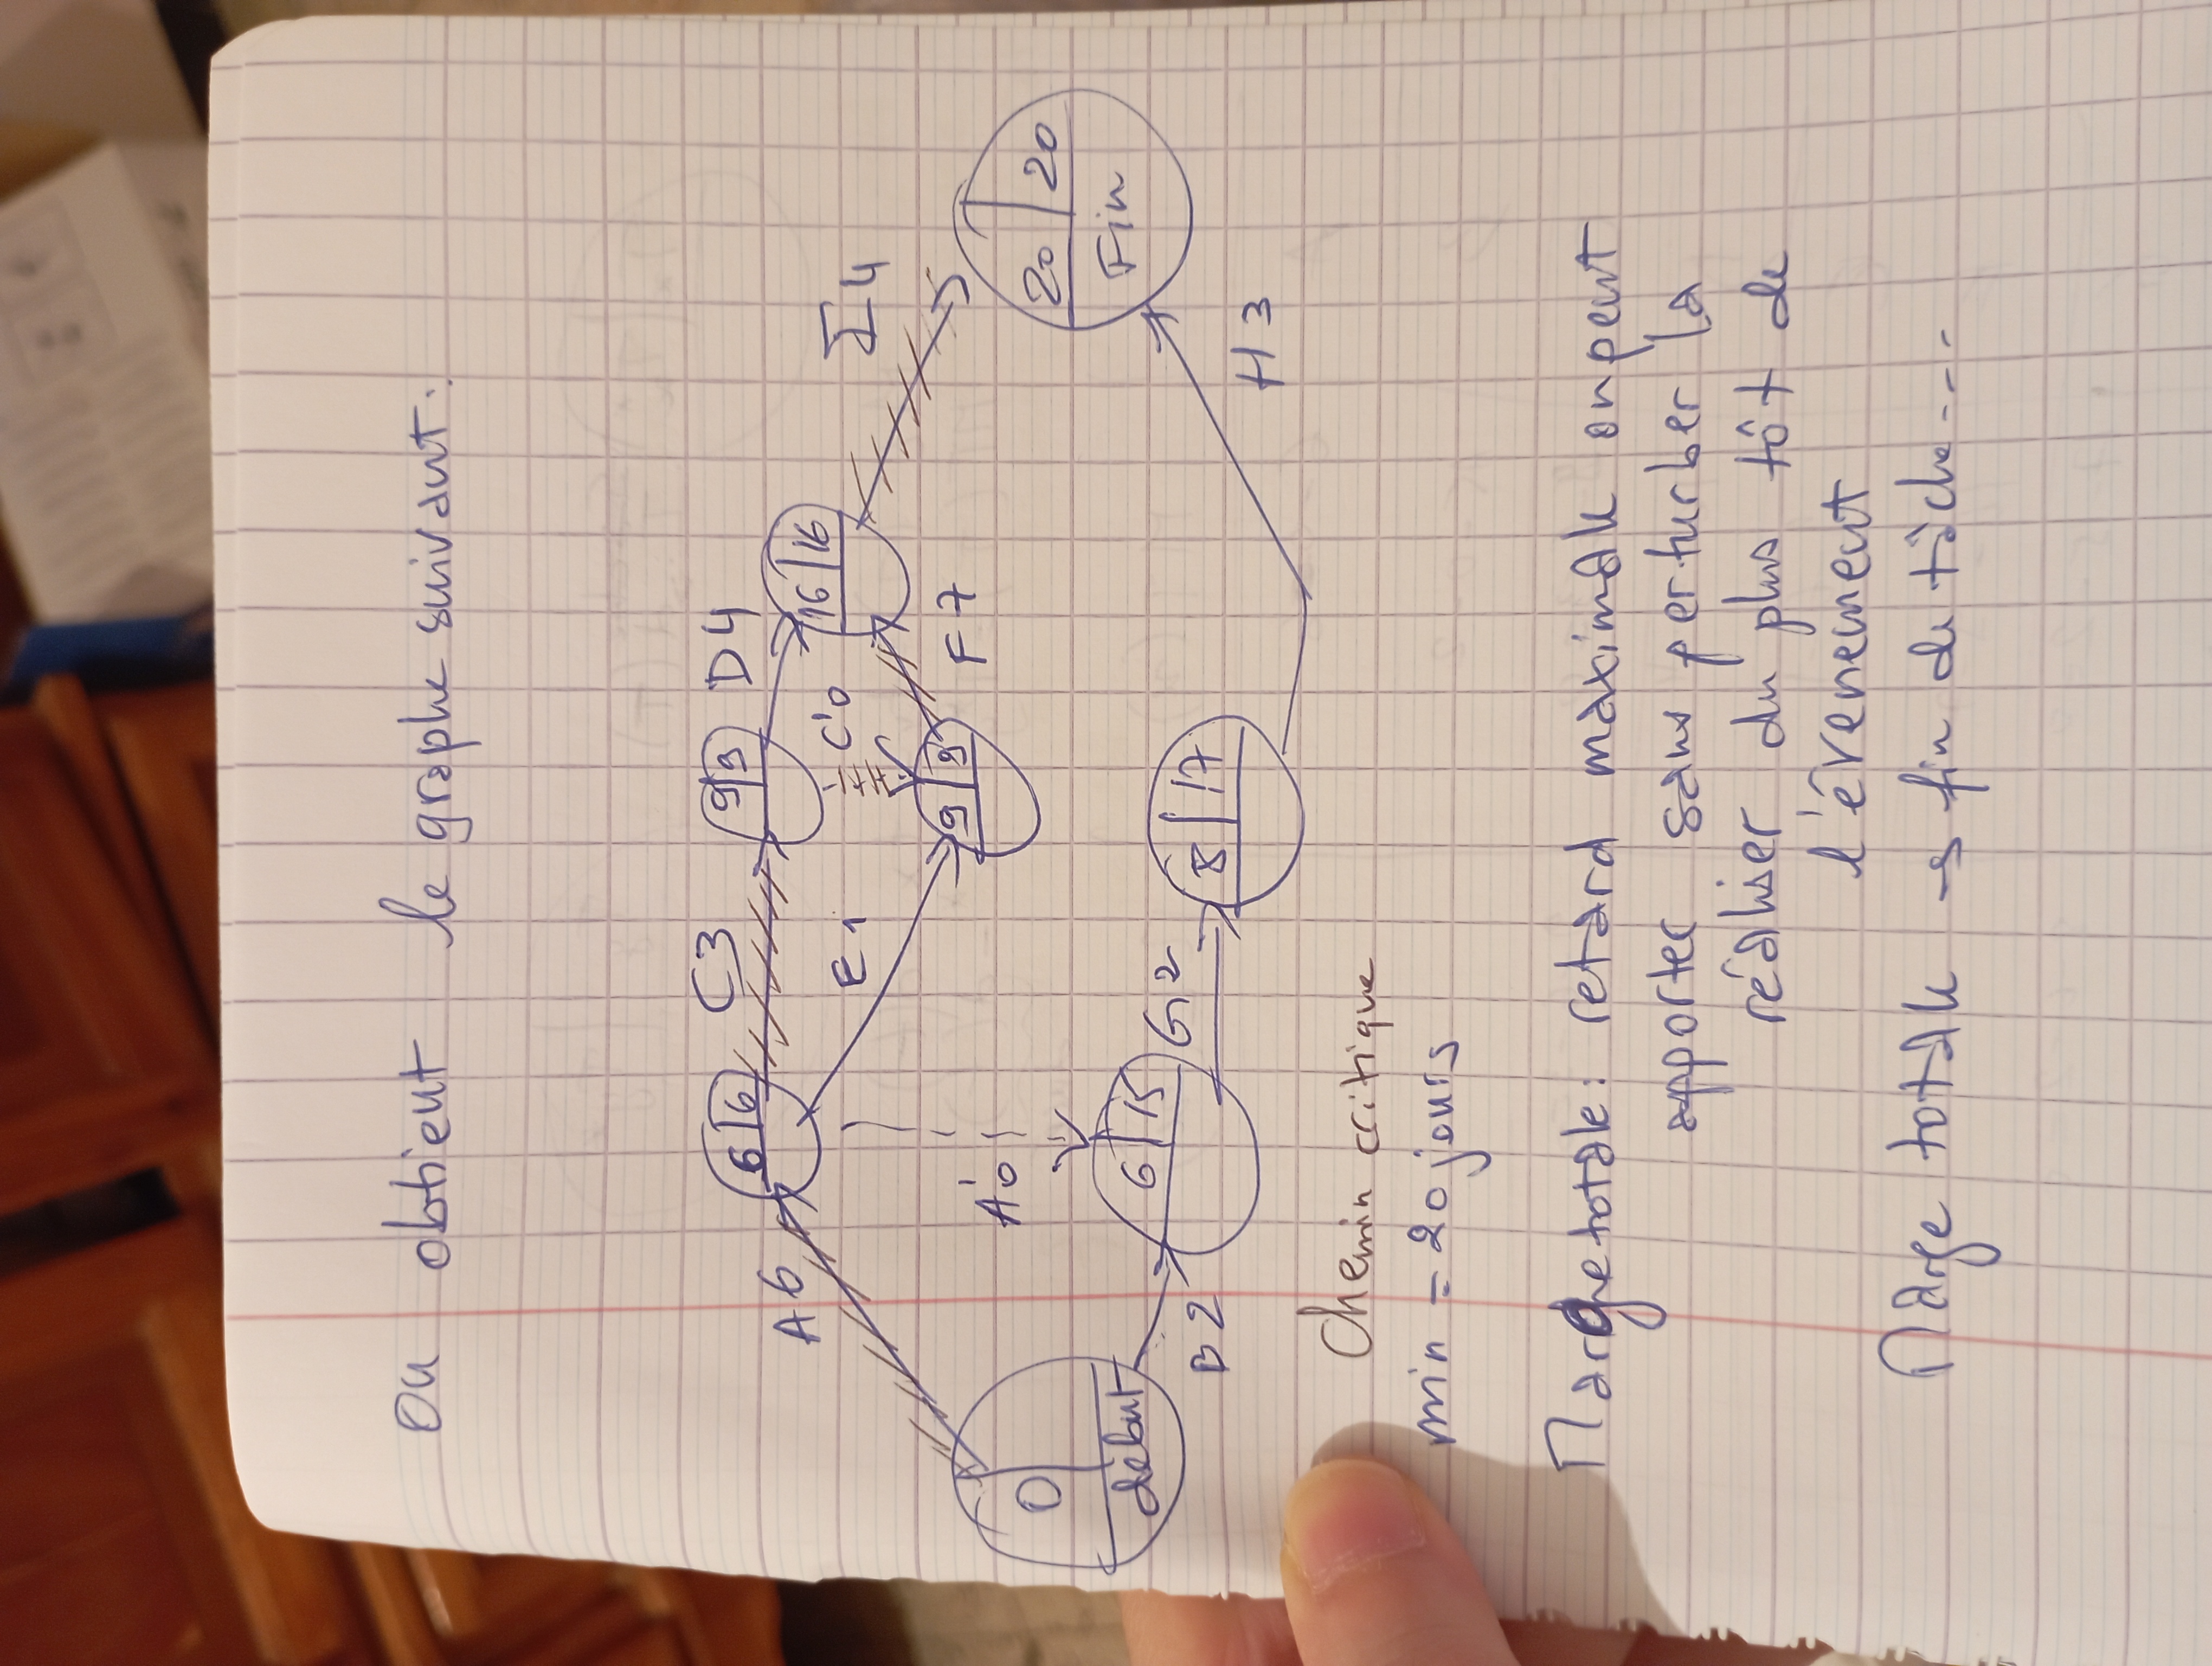 On obtient le graphe suivant:
C3
6|6
9|9
D4
A6
16|16
E1
C'0
Σ4
9|9
F7
A'0
0
début
20|20
Fin
6|15
G2
B2
8|17
H3
Chemin critique
min = 20 jours
Marge totale: retard maximale on peut
apporter sans perturber la
réaliser du plus tôt de
l'évenement
Marge totale → fin de tâche ---